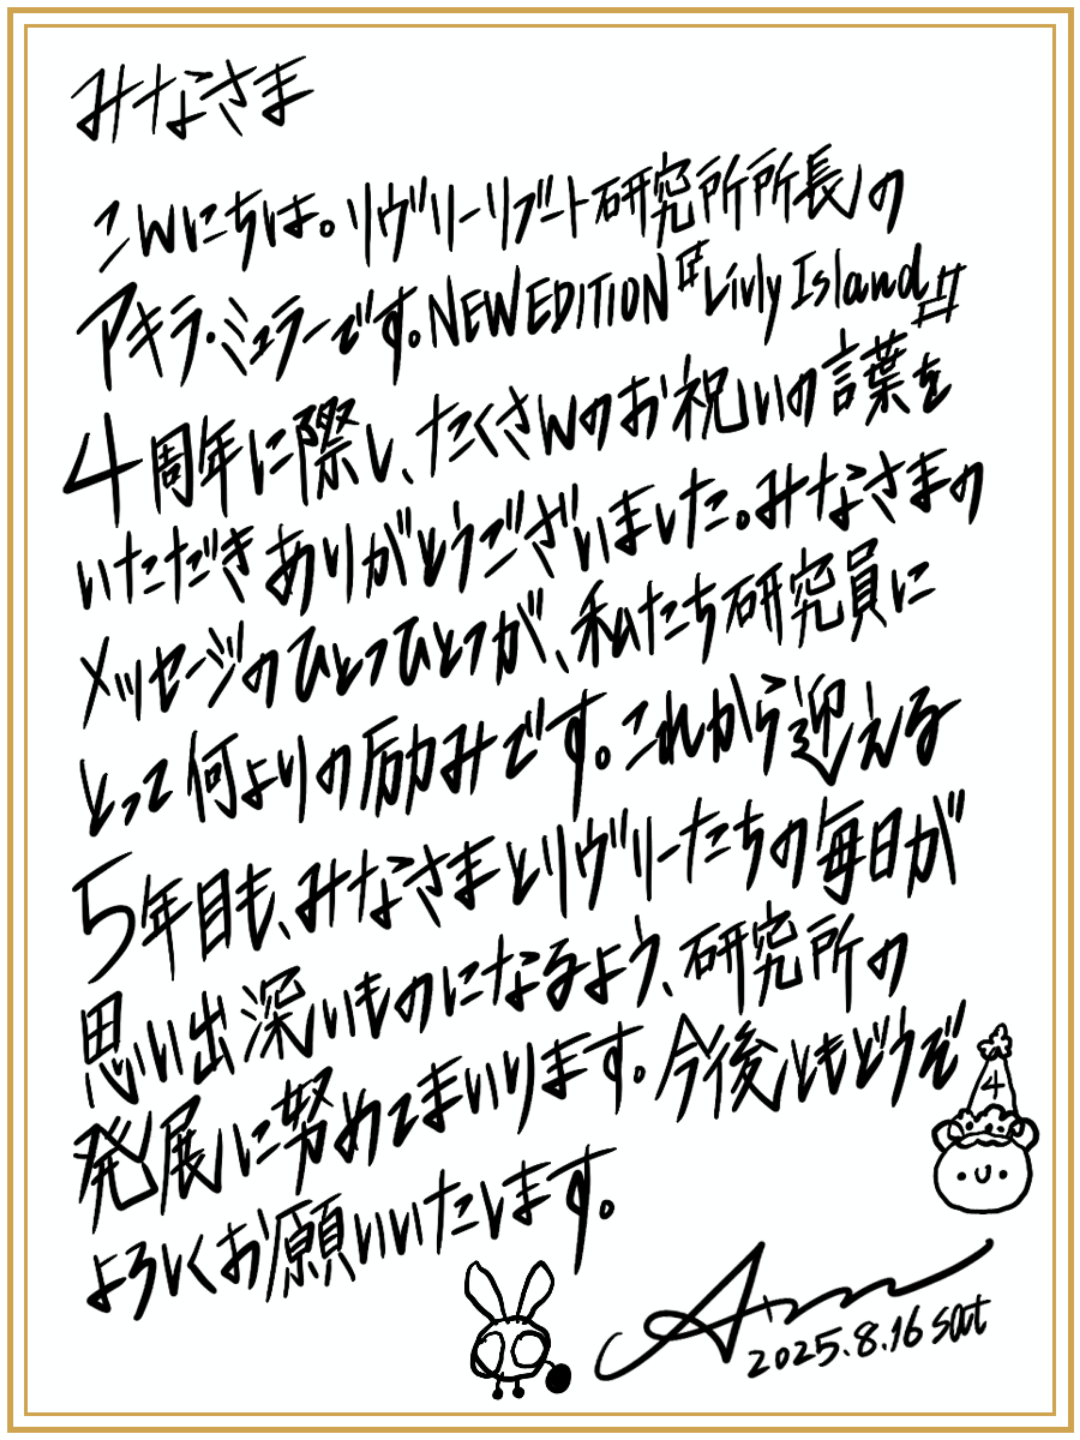 みなさま
こんにちは。リヴリーリブート研究所所長の
アキラ・ミュラーです。NEW EDITION『Livly Island』
4周年に際し、たくさんのお祝いの言葉を
いただきありがとうございました。みなさまの
メッセージのひとつひとつが、私たち研究員に
とって何よりの励みです。これから迎える
5年目も、みなさまとリヴリーたちの毎日が
思い出深いものになるよう、研究所の
発展に努めてまいります。今後ともどうぞ
4
よろしくお願いいたします。
2025.8.16 sat